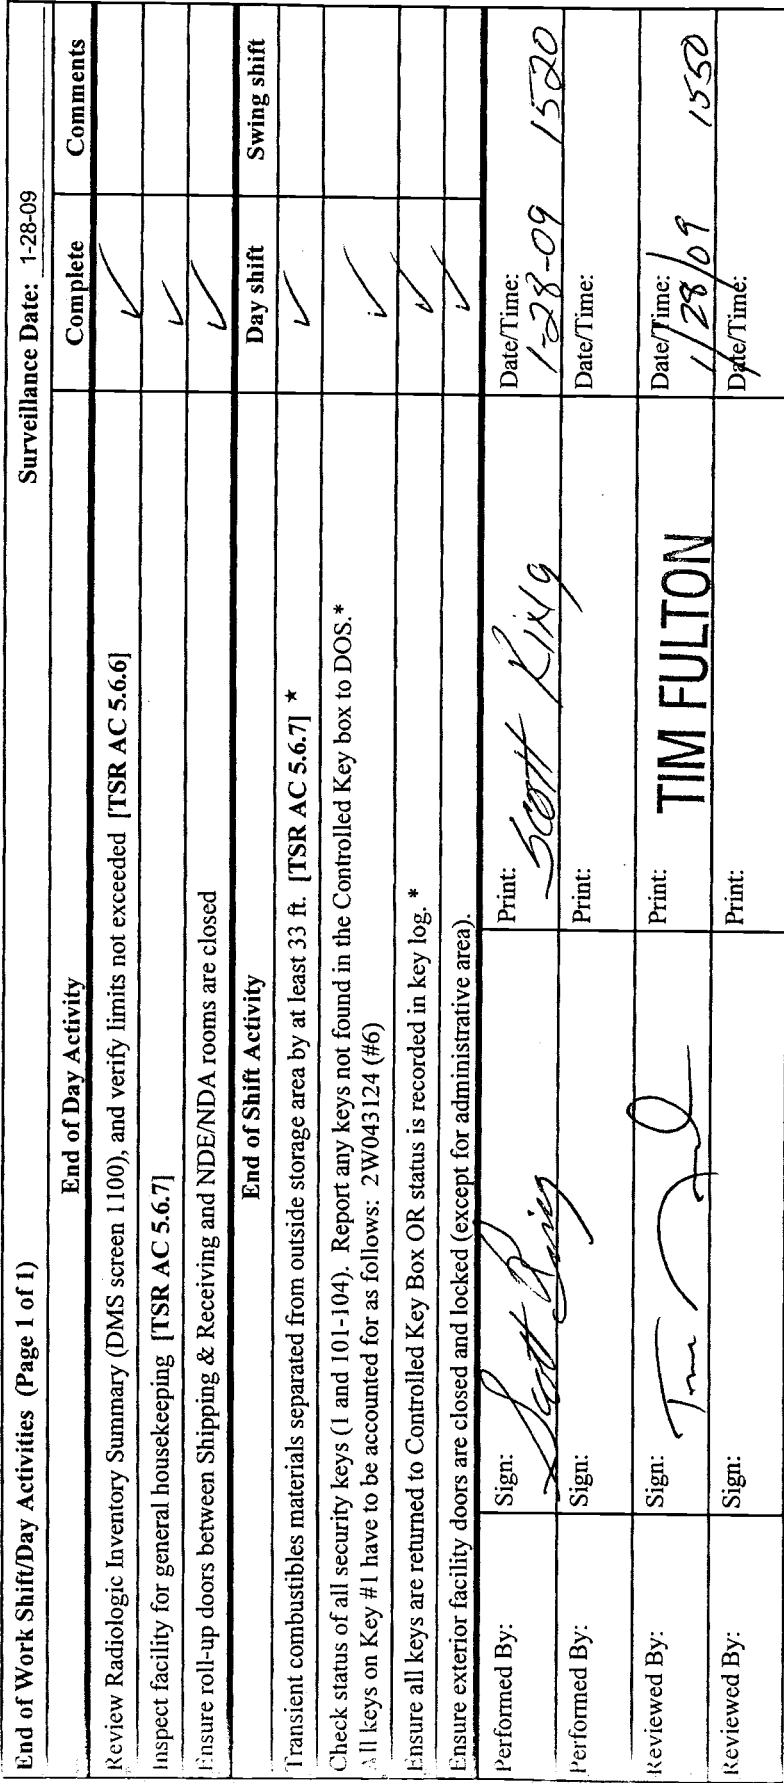 End of Work Shift/Day Activities (Page 1 of 1) Surveillance Date: 1-28-09
End of Day Activity Complete Comments
Review Radiologic Inventory Summary (DMS screen 1100), and verify limits not exceeded [TSR AC 5.6.6] ✓
Inspect facility for general housekeeping [TSR AC 5.6.7] ✓
Ensure roll-up doors between Shipping & Receiving and NDE/NDA rooms are closed ✓
End of Shift Activity Day shift Swing shift
Transient combustibles materials separated from outside storage area by at least 33 ft. [TSR AC 5.6.7] * ✓
Check status of all security keys (1 and 101-104). Report any keys not found in the Controlled Key box to DOS.* ✓
All keys on Key #1 have to be accounted for as follows: 2W043124 (#6)
Ensure all keys are returned to Controlled Key Box OR status is recorded in key log. * ✓
Ensure exterior facility doors are closed and locked (except for administrative area). ✓
Performed By: Sign: Scott Print: Scott Date/Time: 1-28-09 1520
Performed By: Sign: Print: Date/Time:
Reviewed By: Sign: Print: TIM FULTON Date/Time: 1/28/09 1550
Reviewed By: Sign: Print: Date/Time: